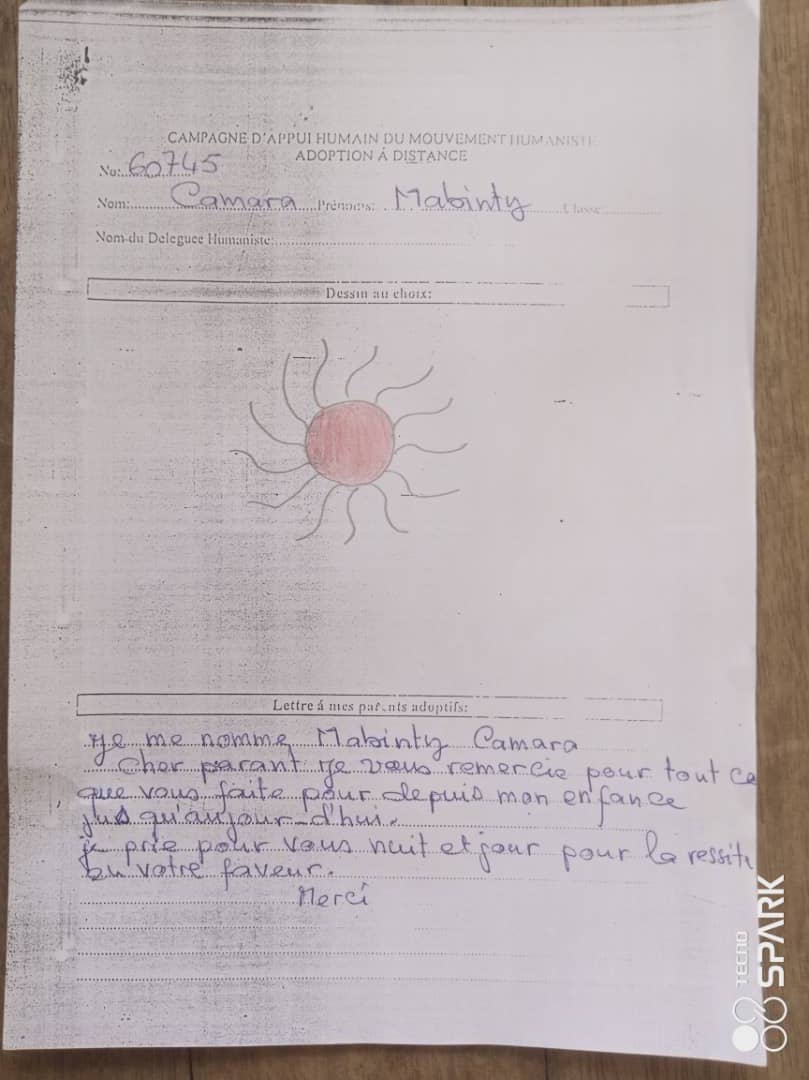 CAMPAGNE D'APPUI HUMAIN DU MOUVEMENT HUMANISTE
ADOPTION Á DISTANCE
No: 60745
Nom: Camara Prénoms: Mabinty Classe
Nom du Deleguee Humaniste:
Dessin au choix:
Lettre á mes parents adoptifs:
Je me nomme Mabinty Camara
Cher parant Je vous remercie pour tout ce
que vous faite pour depuis mon enfance
jus qu'aujour-d'hui.
je prie pour vous nuit et jour pour la ressite
en votre faveur.
Merci
TECNO
SPARK